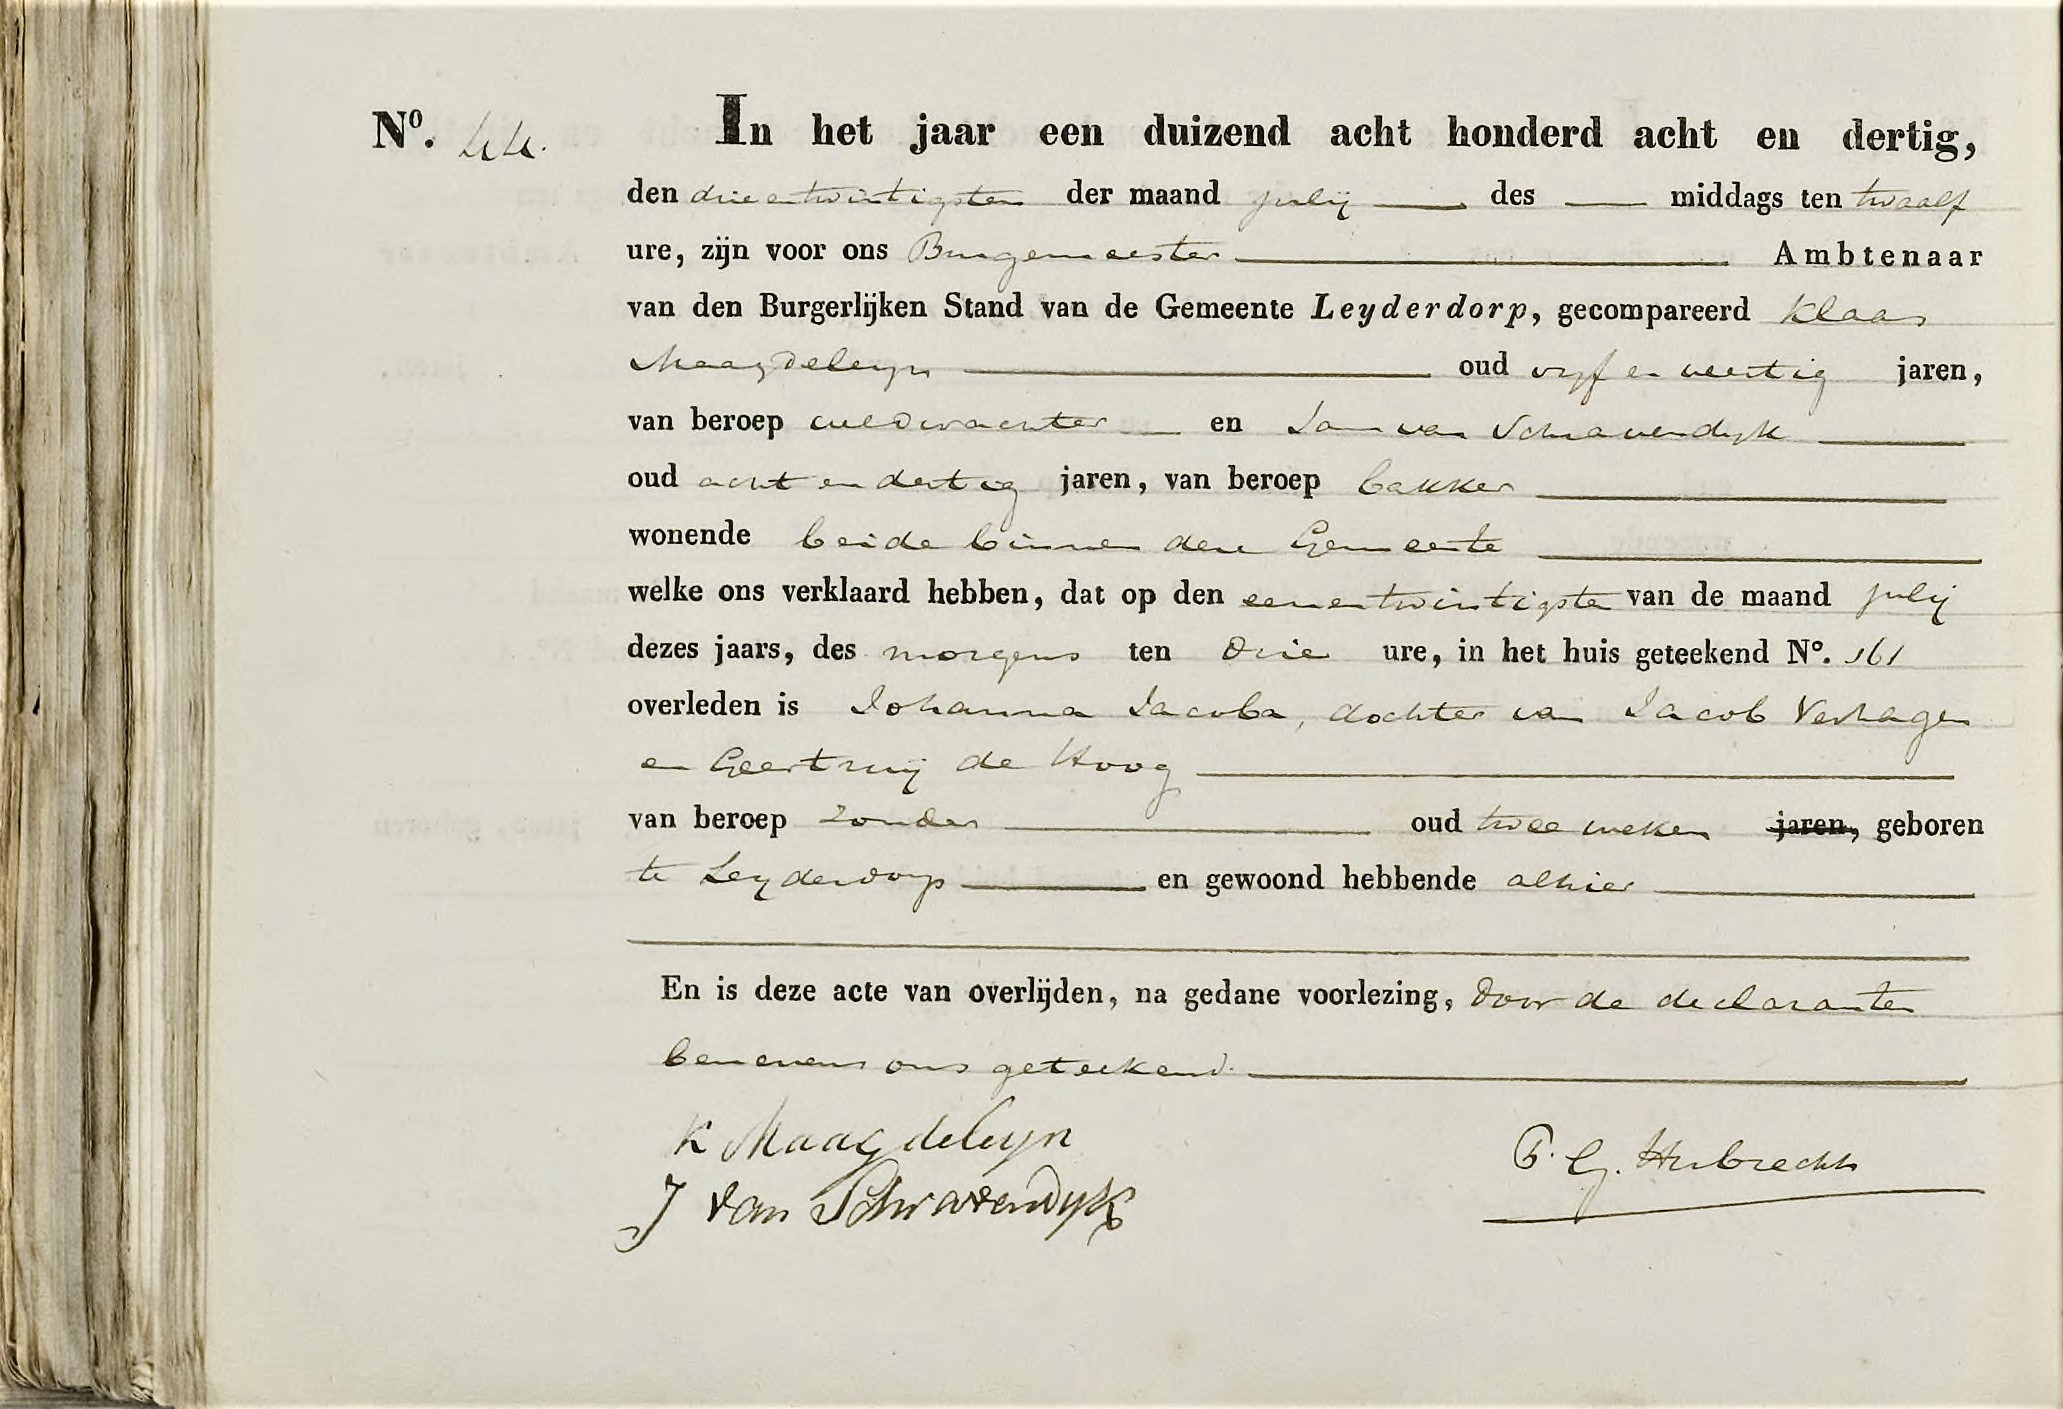 Nº. 44. In het jaar een duizend acht honderd acht en dertig,
den drieentwintigsten der maand Julij des middags ten twaalf
ure, zijn voor ons Burgemeester Ambtenaar
van den Burgerlijken Stand van de Gemeente Leyderdorp, gecompareerd Klaas
Maagdeleyn oud vyf en veertig jaren,
van beroep veldwachter en Jan van Schravendyk
oud acht en dertig jaren, van beroep bakker
wonende beide binnen deze Gemeente
welke ons verklaard hebben, dat op den eenentwintigsten van de maand Julij
dezes jaars, des morgens ten drie ure, in het huis geteekend Nº. 161
overleden is Johanna Jacoba, dochter van Jacob Verhagen
en Geertruij de Hoog
van beroep zonder oud twee weken jaren, geboren
te Leyderdorp en gewoond hebbende alhier
En is deze acte van overlijden, na gedane voorlezing, door de declaranten
benevens ons geteekend.
K Maagdeleyn
J van Schravendyk
P. G. Hubrecht